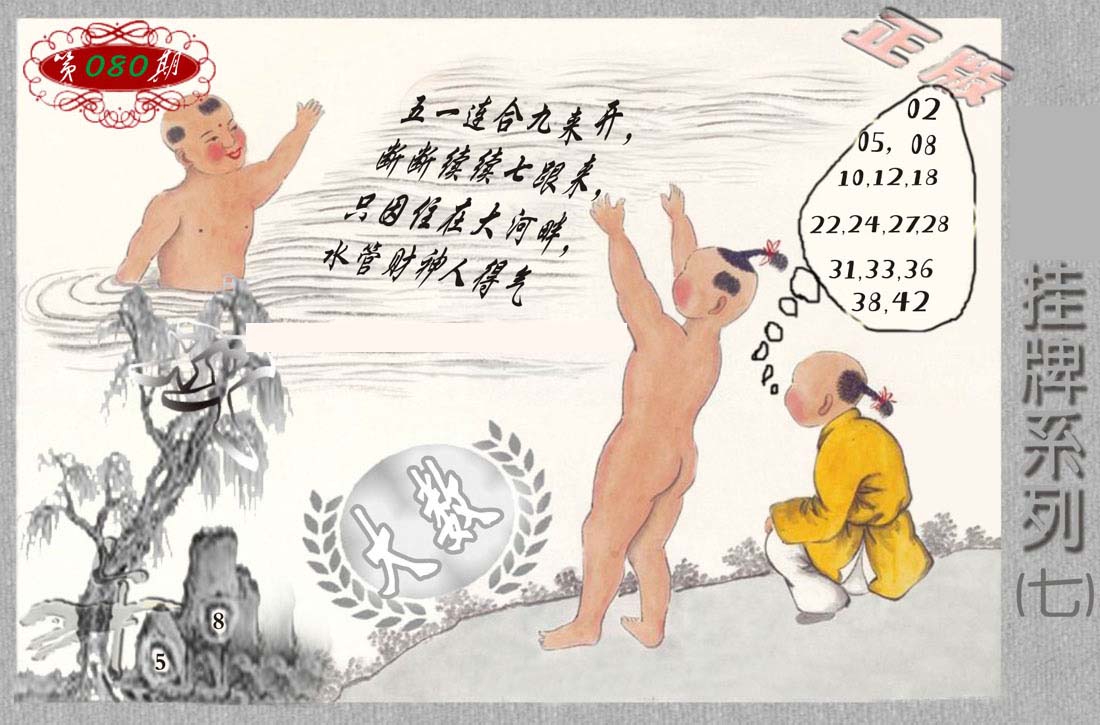 第080期
正版
五一连合九来开，
断断续续七跟来，
只因住在大河畔，
水管财神人得气
02
05, 08
10,12,18
22,24,27,28
31,33,36
38,42
挂牌系列(七)
大数
8
5